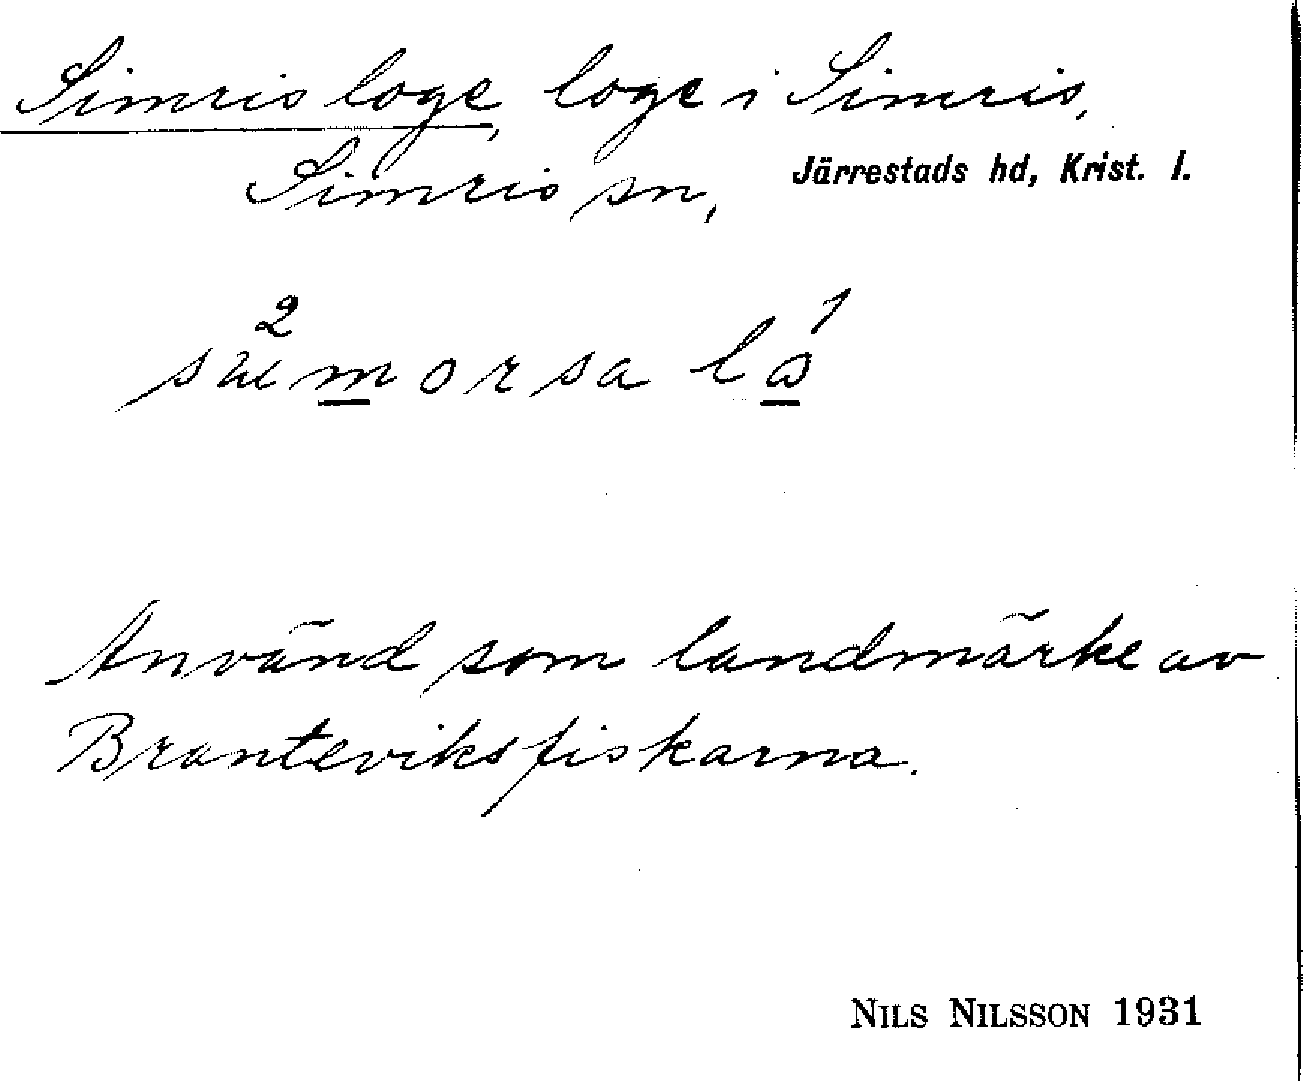 Simris loge, loge i Simris,
Simris sn, Järrestads hd, Krist. l.
2 1
sæmorsa lɷ
Använd som landmärke av
Branteviksfiskarna.
NILS NILSSON 1931